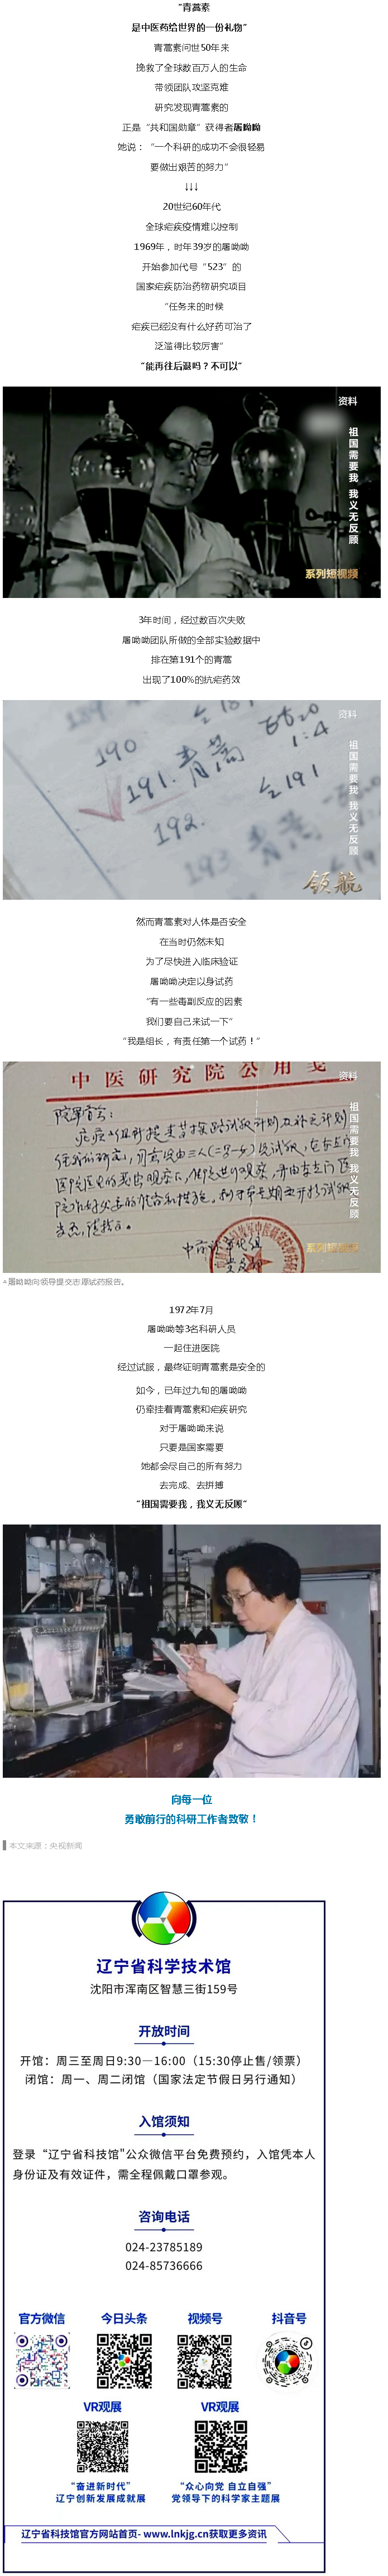 “青蒿素
是中医药给世界的一份礼物”
青蒿素问世50年来
挽救了全球数百万人的生命
带领团队攻坚克难
研究发现青蒿素的
正是“共和国勋章”获得者屠呦呦
她说：“一个科研的成功不会很轻易
要做出艰苦的努力”
↓↓↓
20世纪60年代
全球疟疾疫情难以控制
1969年，时年39岁的屠呦呦
开始参加代号“523”的
国家疟疾防治药物研究项目
“任务来的时候
疟疾已经没有什么好药可治了
泛滥得比较厉害”
“能再往后退吗？不可以”
资料
祖国需要我 我义无反顾
系列短视频
3年时间，经过数百次失败
屠呦呦团队所做的全部实验数据中
排在第191个的青蒿
出现了100%的抗疟药效
资料
190
191.青蒿
192.
193
1:4
191
祖国需要我 我义无反顾
领航
然而青蒿素对人体是否安全
在当时仍然未知
为了尽快进入临床验证
屠呦呦决定以身试药
“有一些毒副反应的因素
我们要自己来试一下”
“我是组长，有责任第一个试药！”
中医研究院公用笺
资料
祖国需要我 我义无反顾
系列短视频
▵屠呦呦向领导提交志愿试药报告。
1972年7月
屠呦呦等3名科研人员
一起住进医院
经过试服，最终证明青蒿素是安全的
如今，已年过九旬的屠呦呦
仍牵挂着青蒿素和疟疾研究
对于屠呦呦来说
只要是国家需要
她都会尽自己的所有努力
去完成、去拼搏
“祖国需要我，我义无反顾”
向每一位
勇敢前行的科研工作者致敬！
本文来源：央视新闻
辽宁省科学技术馆
沈阳市浑南区智慧三街159号
开放时间
开馆：周三至周日9:30—16:00（15:30停止售/领票）
闭馆：周一、周二闭馆（国家法定节假日另行通知）
入馆须知
登录“辽宁省科技馆"公众微信平台免费预约，入馆凭本人
身份证及有效证件，需全程佩戴口罩参观。
咨询电话
024-23785189
024-85736666
官方微信 今日头条 视频号 抖音号
VR观展 VR观展
“奋进新时代” “众心向党 自立自强”
辽宁创新发展成就展 党领导下的科学家主题展
辽宁省科技馆官方网站首页- www.lnkjg.cn获取更多资讯